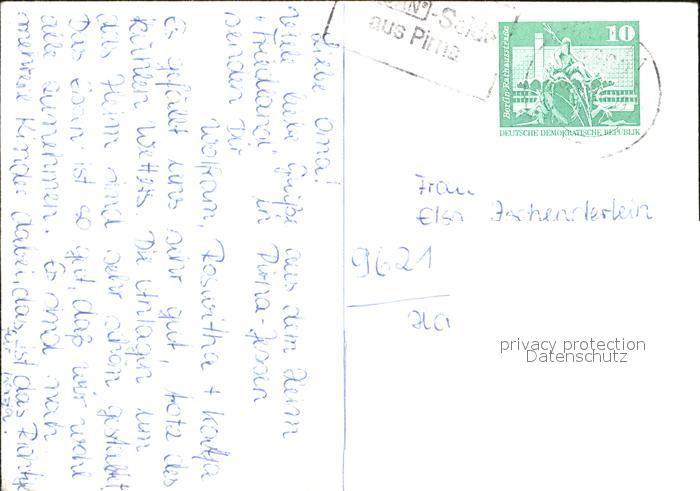 Liebe Oma!
Viele liebe Grüße aus dem Heim
"Friedland" in Pirna-Jessen
senden Dir
Wolfram, Roswitha + Katja
Es gefällt uns sehr gut, trotz des
kühlen Wetters. Die Anlagen um
das Heim sind sehr schön gestaltet.
Das Essen ist so gut, daß wir wohl
alle zunehmen. Es sind noch
mehrere Kinder dabei, das ist das Richtige
für
aus Pirna
10
Berlin, Rathausstraße
DEUTSCHE DEMOKRATISCHE REPUBLIK
Frau
Elsa Zschenderlein
9621
privacy protection
Datenschutz